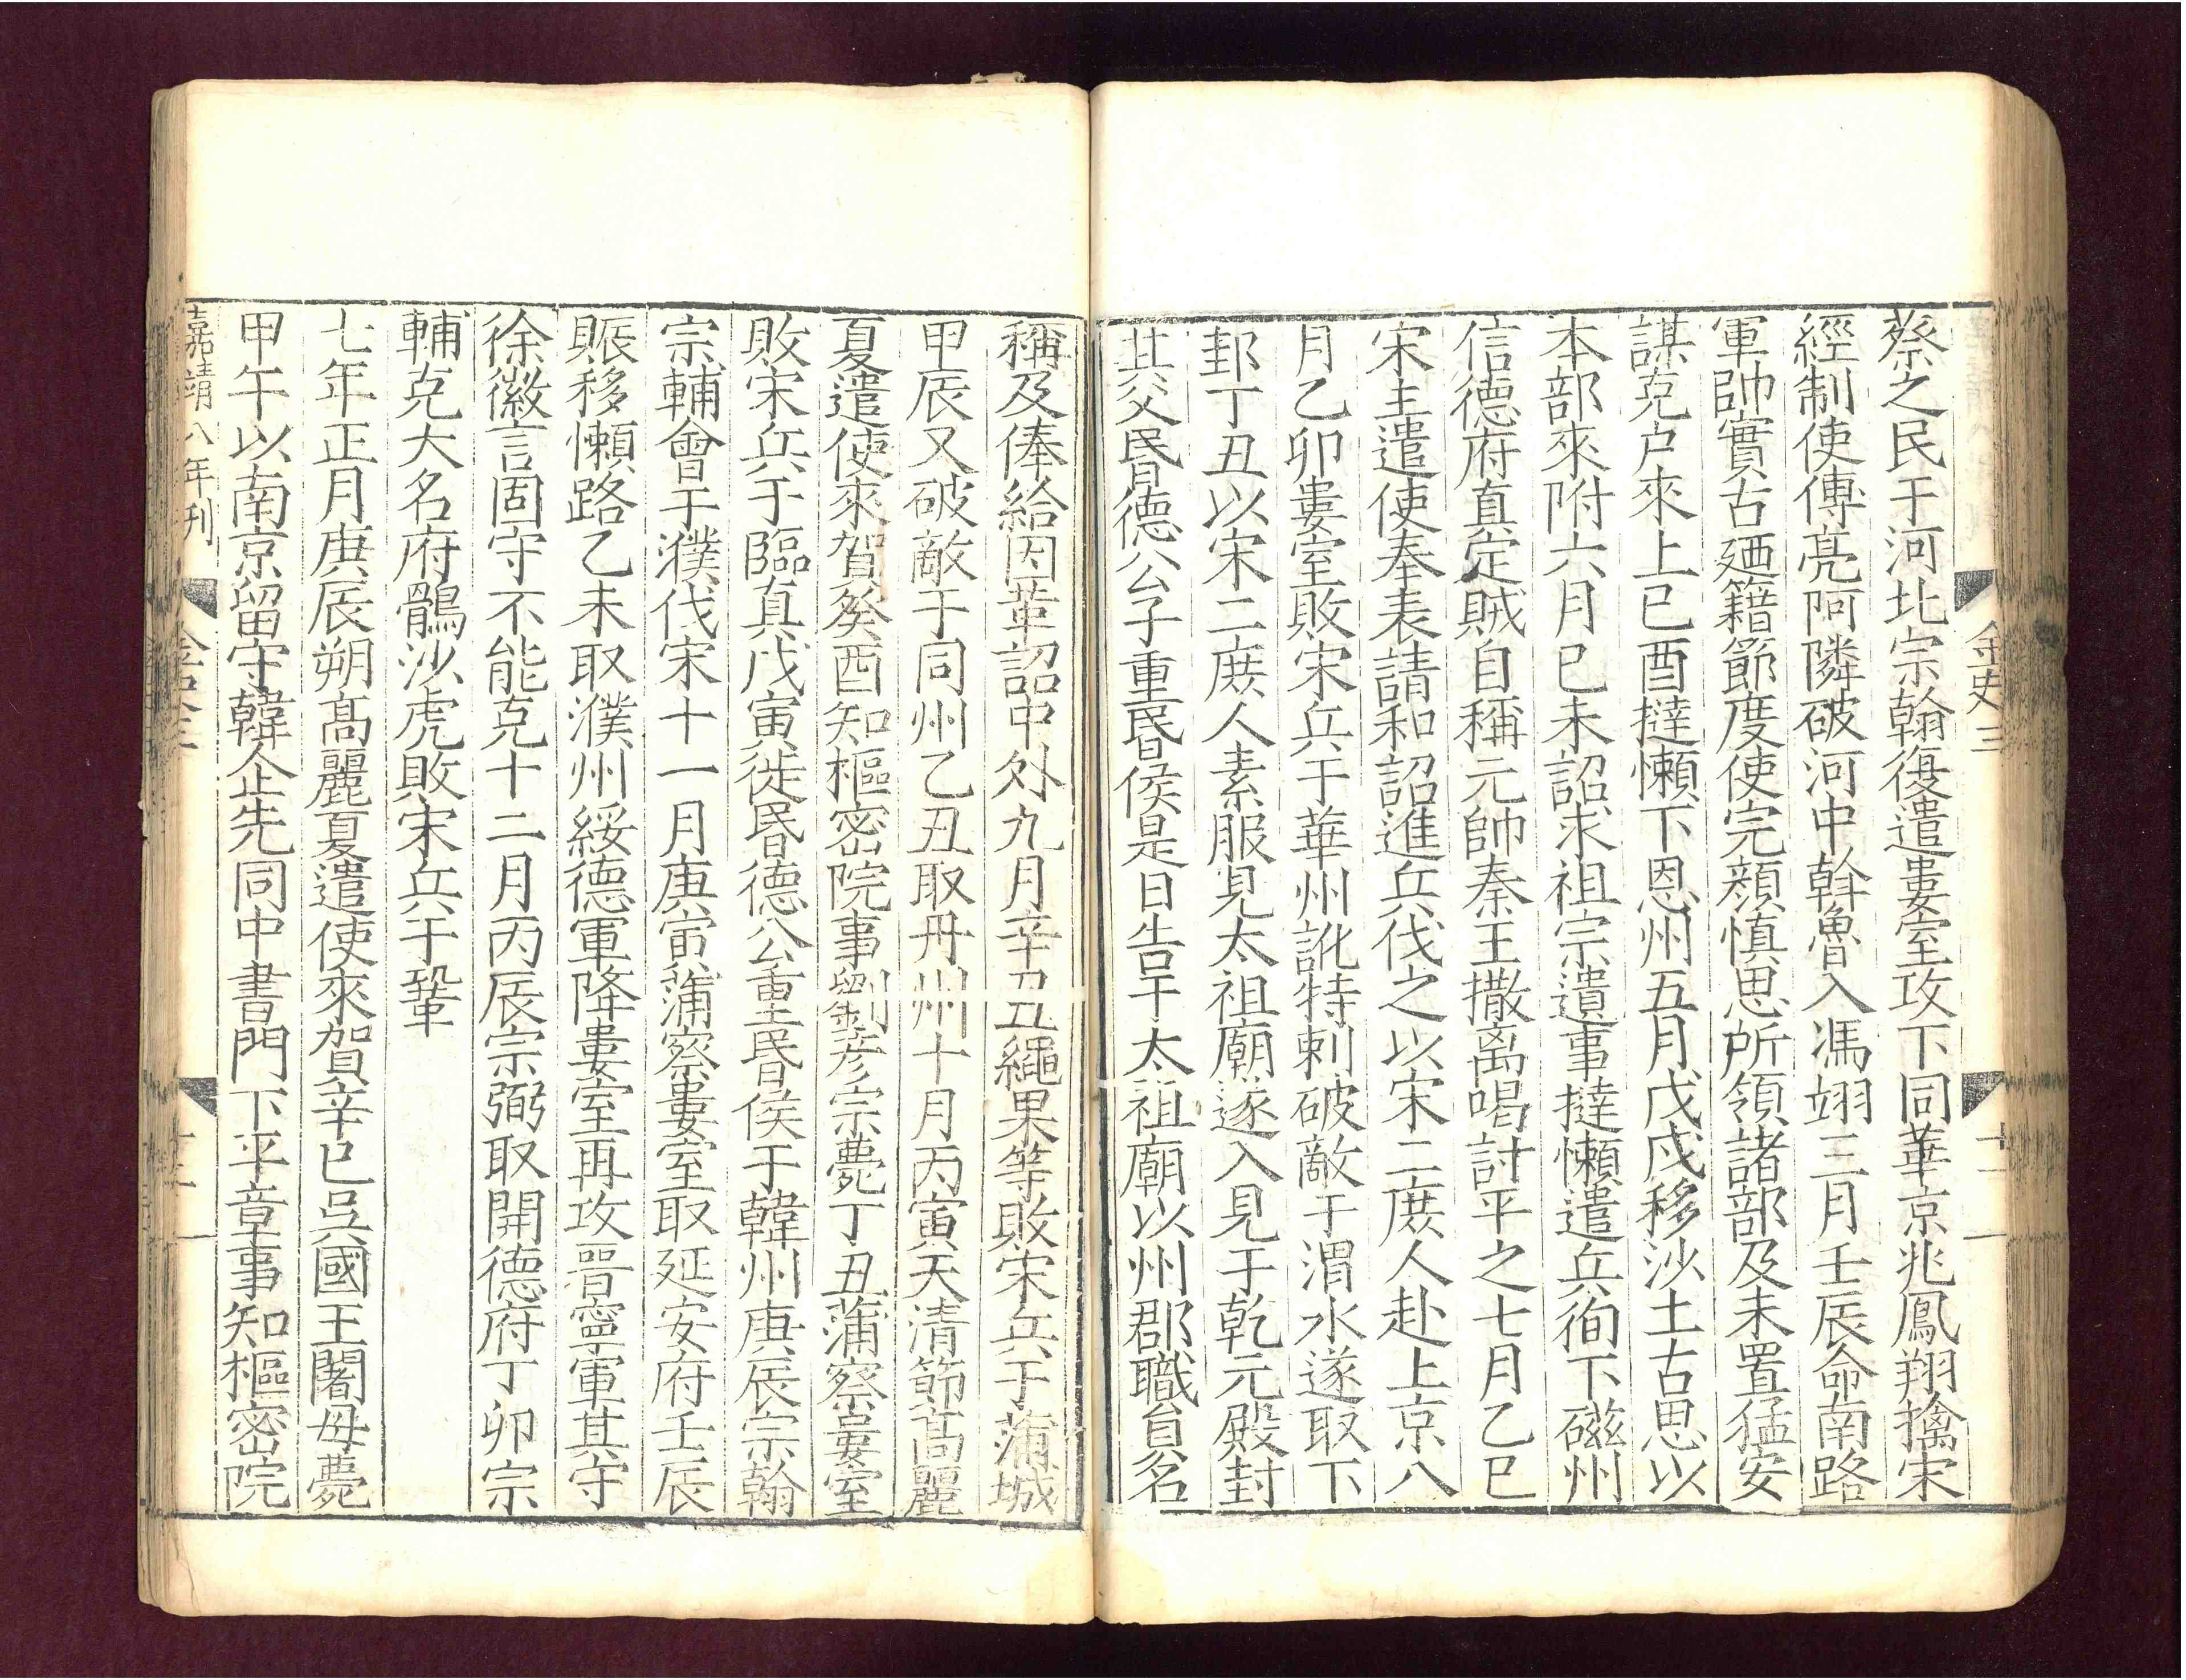 金史三
十二
蔡之民于河北宗翰復遣婁室攻下同華京兆鳳翔擒宋
經制使傅亮阿隣破河中斡魯入馮翊三月壬辰命南路
軍帥實古廼籍節度使完顏慎思所領諸部及未置猛安
謀克户來上已酉撻懶下恩州五月戊戌移沙土古思以
本部來附六月已未詔求祖宗遺事撻懶遣兵徇下磁州
信德府真定賊自稱元帥秦王撒离喝討平之七月乙巳
宋主遣使奉表請和詔進兵伐之以宋二庶人赴上京八
月乙卯婁室敗宋兵于華州訛特剌破敵于渭水遂取下
邽丁丑以宋二庶人素服見太祖廟遂入見于乾元殿封
其父昬德公子重昬侯是日告于太祖廟以州郡職員名
稱及俸給因革詔中外九月辛丑繩果等敗宋兵于蒲城
甲辰又破敵于同州乙丑取丹州十月丙寅天清節高麗
夏遣使來賀癸酉知樞密院事劉彦宗薨丁丑蒲察婁室
敗宋兵于臨真戊寅徙昬德公重昬侯于韓州庚辰宗翰
宗輔會于濮伐宋十一月庚寅蒲察婁室取延安府壬辰
賑移懶路乙未取濮州綏德軍降婁室再攻晋寧軍其守
徐徽言固守不能克十二月丙辰宗弼取開德府丁卯宗
輔克大名府鶻沙虎敗宋兵于鞏
七年正月庚辰朔高麗夏遣使來賀辛巳吳國王闍母薨
甲午以南京留守韓企先同中書門下平章事知樞密院
嘉靖八年刊
金史三
十二